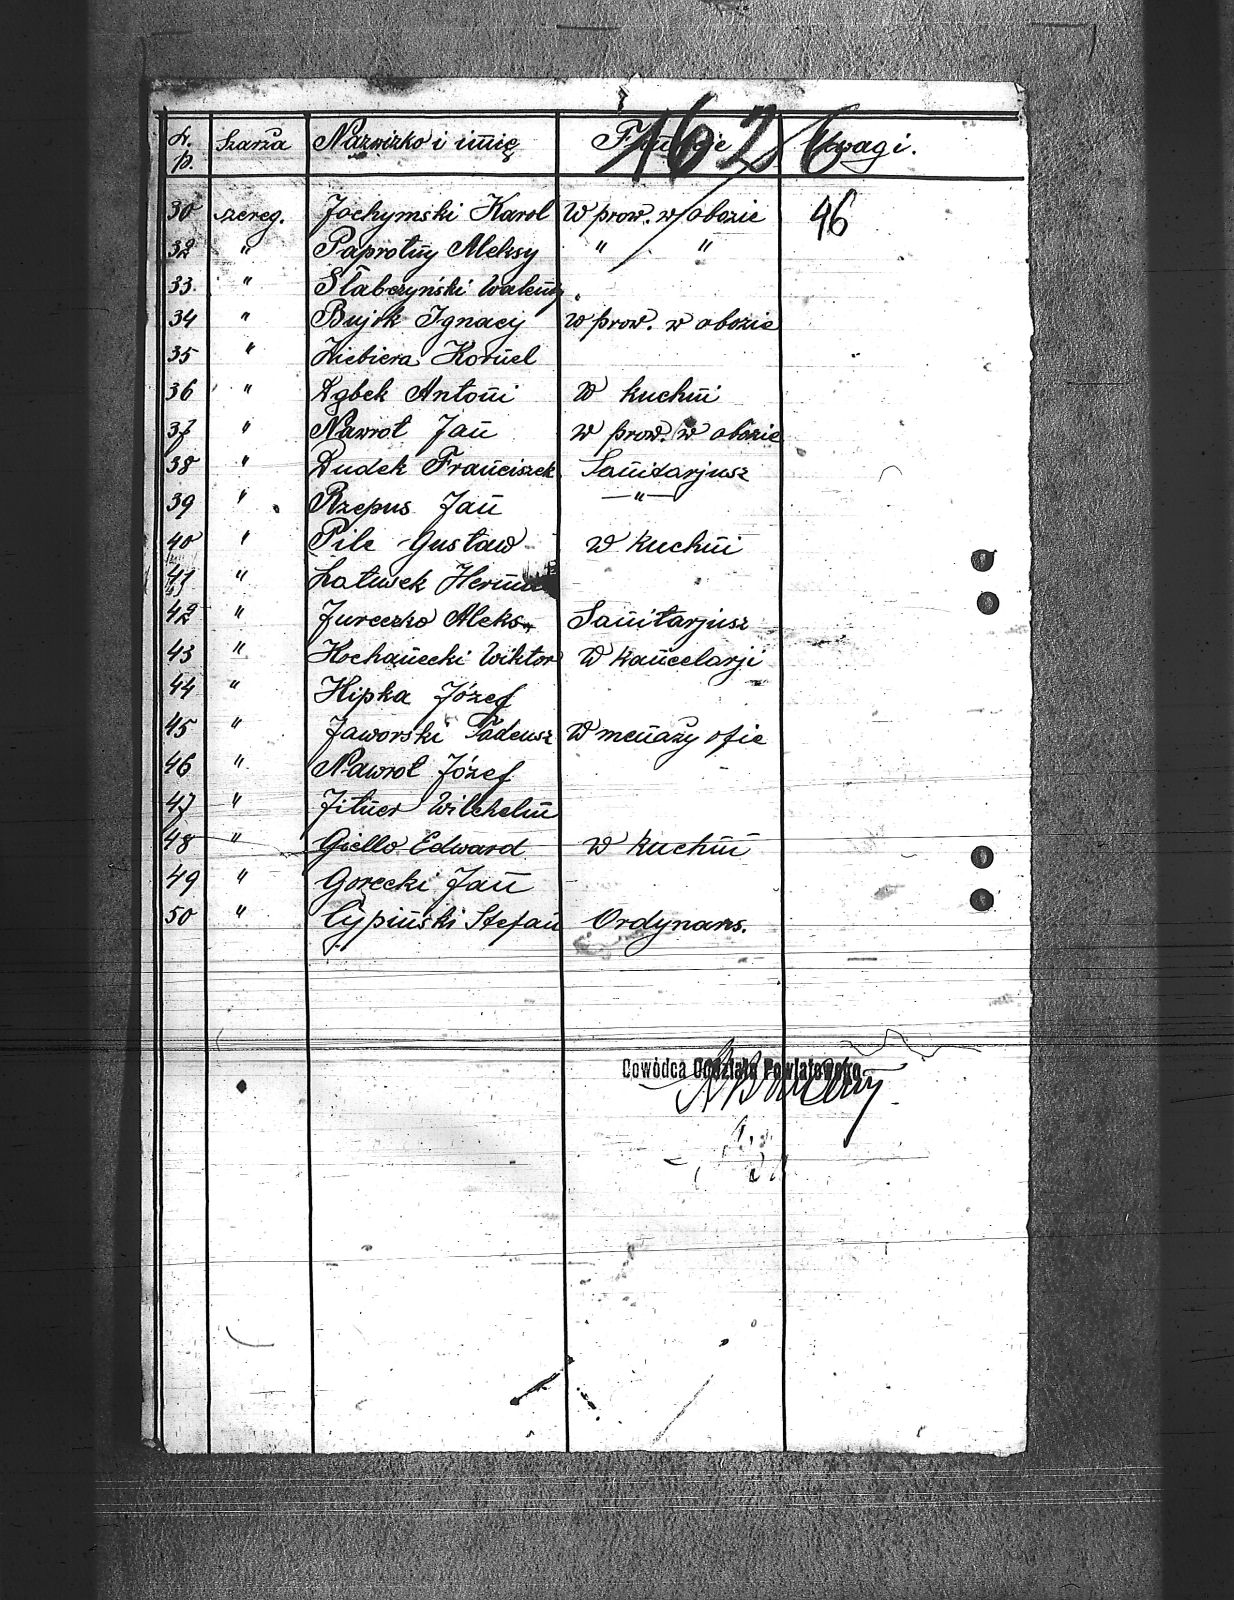 L. p. Szarża Nazwisko i imię Funkcje Uwagi.
1626
30 szereg. Jochymski Karol w prow. w obozie 46
32 " Paprotny Aleksy " "
33. " Słabczyński Walenty.
34 " Bujok Ignacy w prow. w obozie
35 " Kornel
36 " Antoni w kuchni
37 " Nawrot Jan w prow. w obozie
38 " Dudek Franciszek Sanitarjusz
39 " Rzepus Jan — " —
40 " Pile Gustaw w kuchni
41 " Latusek
42 " Jureczko Aleks. Sanitarjusz
43 " Kochanecki Wiktor w kancelarji
44 " Hipka Józef
45 " Jaworski Tadeusz w menaży ofic
46 " Nawrot Józef
47 " Jitner Wilchelm
48 " Giello Edward w kuchni
49 " Gorecki Jan
50 " Cypiński Stefan Ordynans.
Dowódca Oddziału Powiatowego